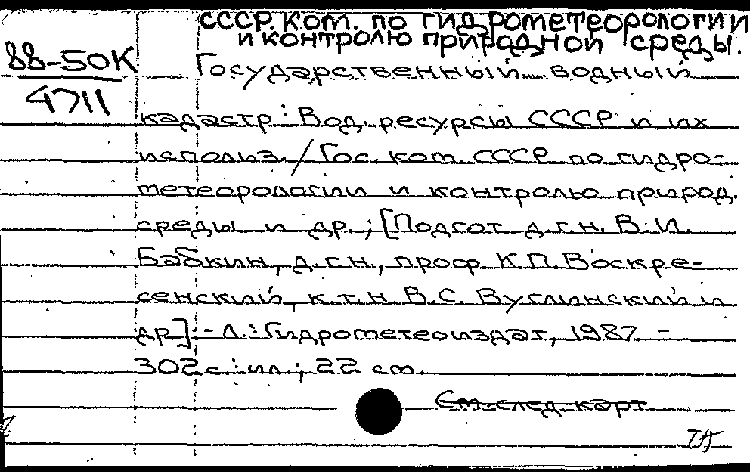 СССР. Ком. по гидрометеорологии
и контролю природной среды.
88-50К
4711
Государственный водный
кадастр: Вод. ресурсы СССР и их
использ. / Гос. ком. СССР по гидро-
метеорологии и контролю природ.
среды и др.; [Подгот. д.г.н. В.И.
Бабкин, д.г.н., проф. К.П. Воскре-
сенский, к.т.н. В.С. Вуглинский и
др.] - Л.: Гидрометеоиздат, 1987. -
302 с.: ил.; 22 см.
См. след. карт.